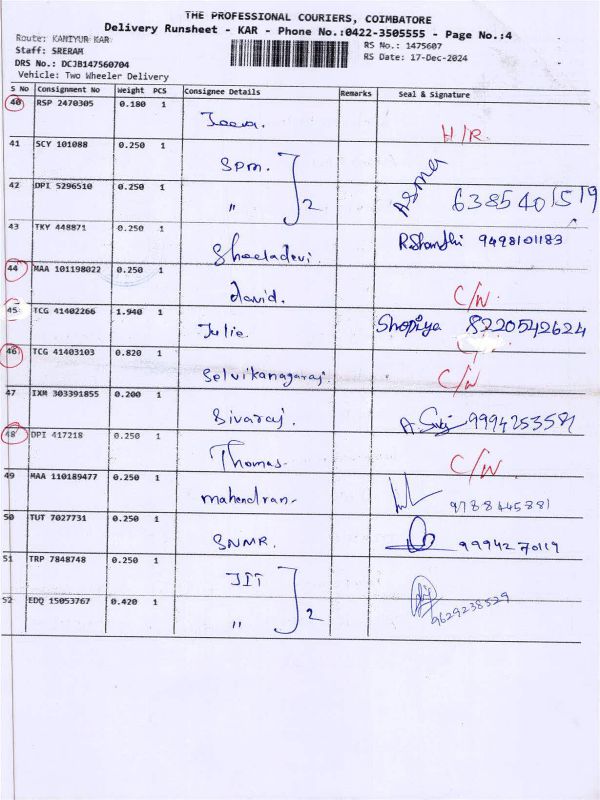 THE PROFESSIONAL COURIERS, COIMBATORE
Delivery Runsheet - KAR - Phone No.:0422-3505555 - Page No.:4
Route: KANIYUR KAR
RS No.: 1475607
Staff: SRERAM
RS Date: 17-Dec-2024
DRS No.: DCJB147560704
Vehicle: Two Wheeler Delivery
S No Consignment No Weight PCS Consignee Details Remarks Seal & Signature
40 RSP 2470305 0.180 1 Jeeva. H/R
41 SCY 101088 0.250 1 SPM. Asma 6385401519
42 DPI 5296510 0.250 1 " 2
43 TKY 448871 0.250 1 Sheeladevi. R.Shanthi 9498101183
44 MAA 101198022 0.250 1 david. C/N.
45 TCG 41402266 1.940 1 Julie. Shopiya 8220542624
46 TCG 41403103 0.820 1 Selvikanagaraj. C/N
47 IXM 303391855 0.200 1 Sivaraj. 9994253581
48 DPI 417218 0.250 1 Thomas. C/N
49 MAA 110189477 0.250 1 Mahendran. 9788445881
50 TUT 7027731 0.250 1 SNMR. 9994270119
51 TRP 7848748 0.250 1 JIT
52 EDQ 15053767 0.420 1 " 2 9629238529